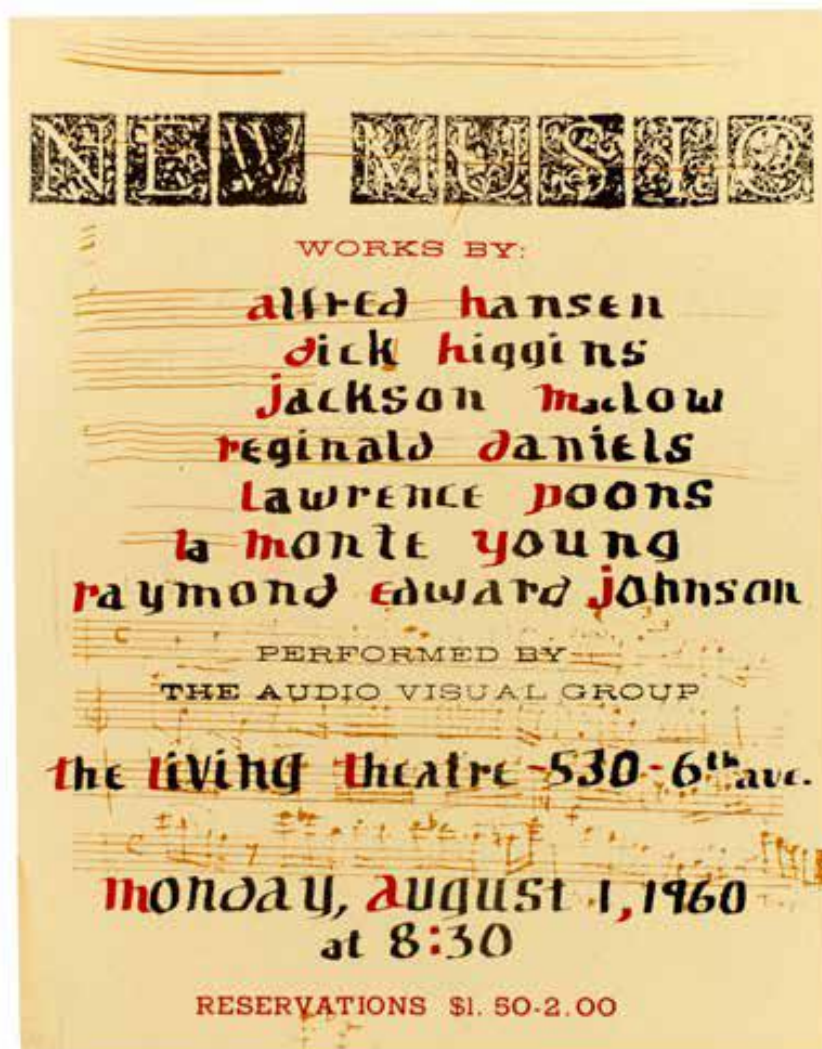 NEW MUSIC
WORKS BY:
alfred hansen
dick higgins
jackson maclow
reginald daniels
lawrence poons
la monte young
raymond edward johnson
PERFORMED BY
THE AUDIO VISUAL GROUP
the living theatre-530-6th ave.
monday, august 1, 1960
at 8:30
RESERVATIONS $1.50-2.00